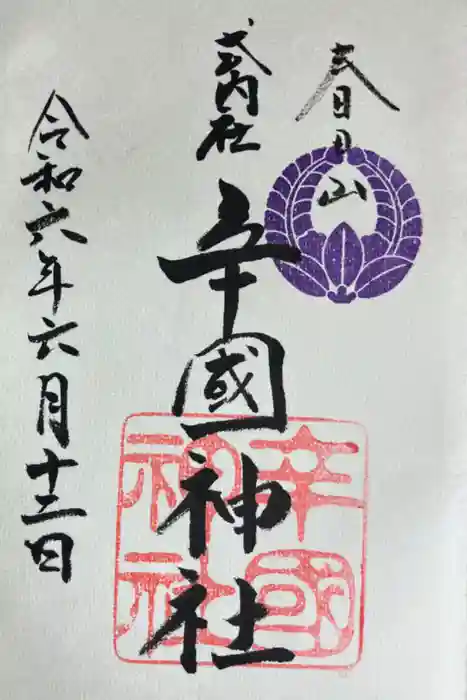 春日山
式内社
辛國神社
辛國神社
令和六年六月十三日